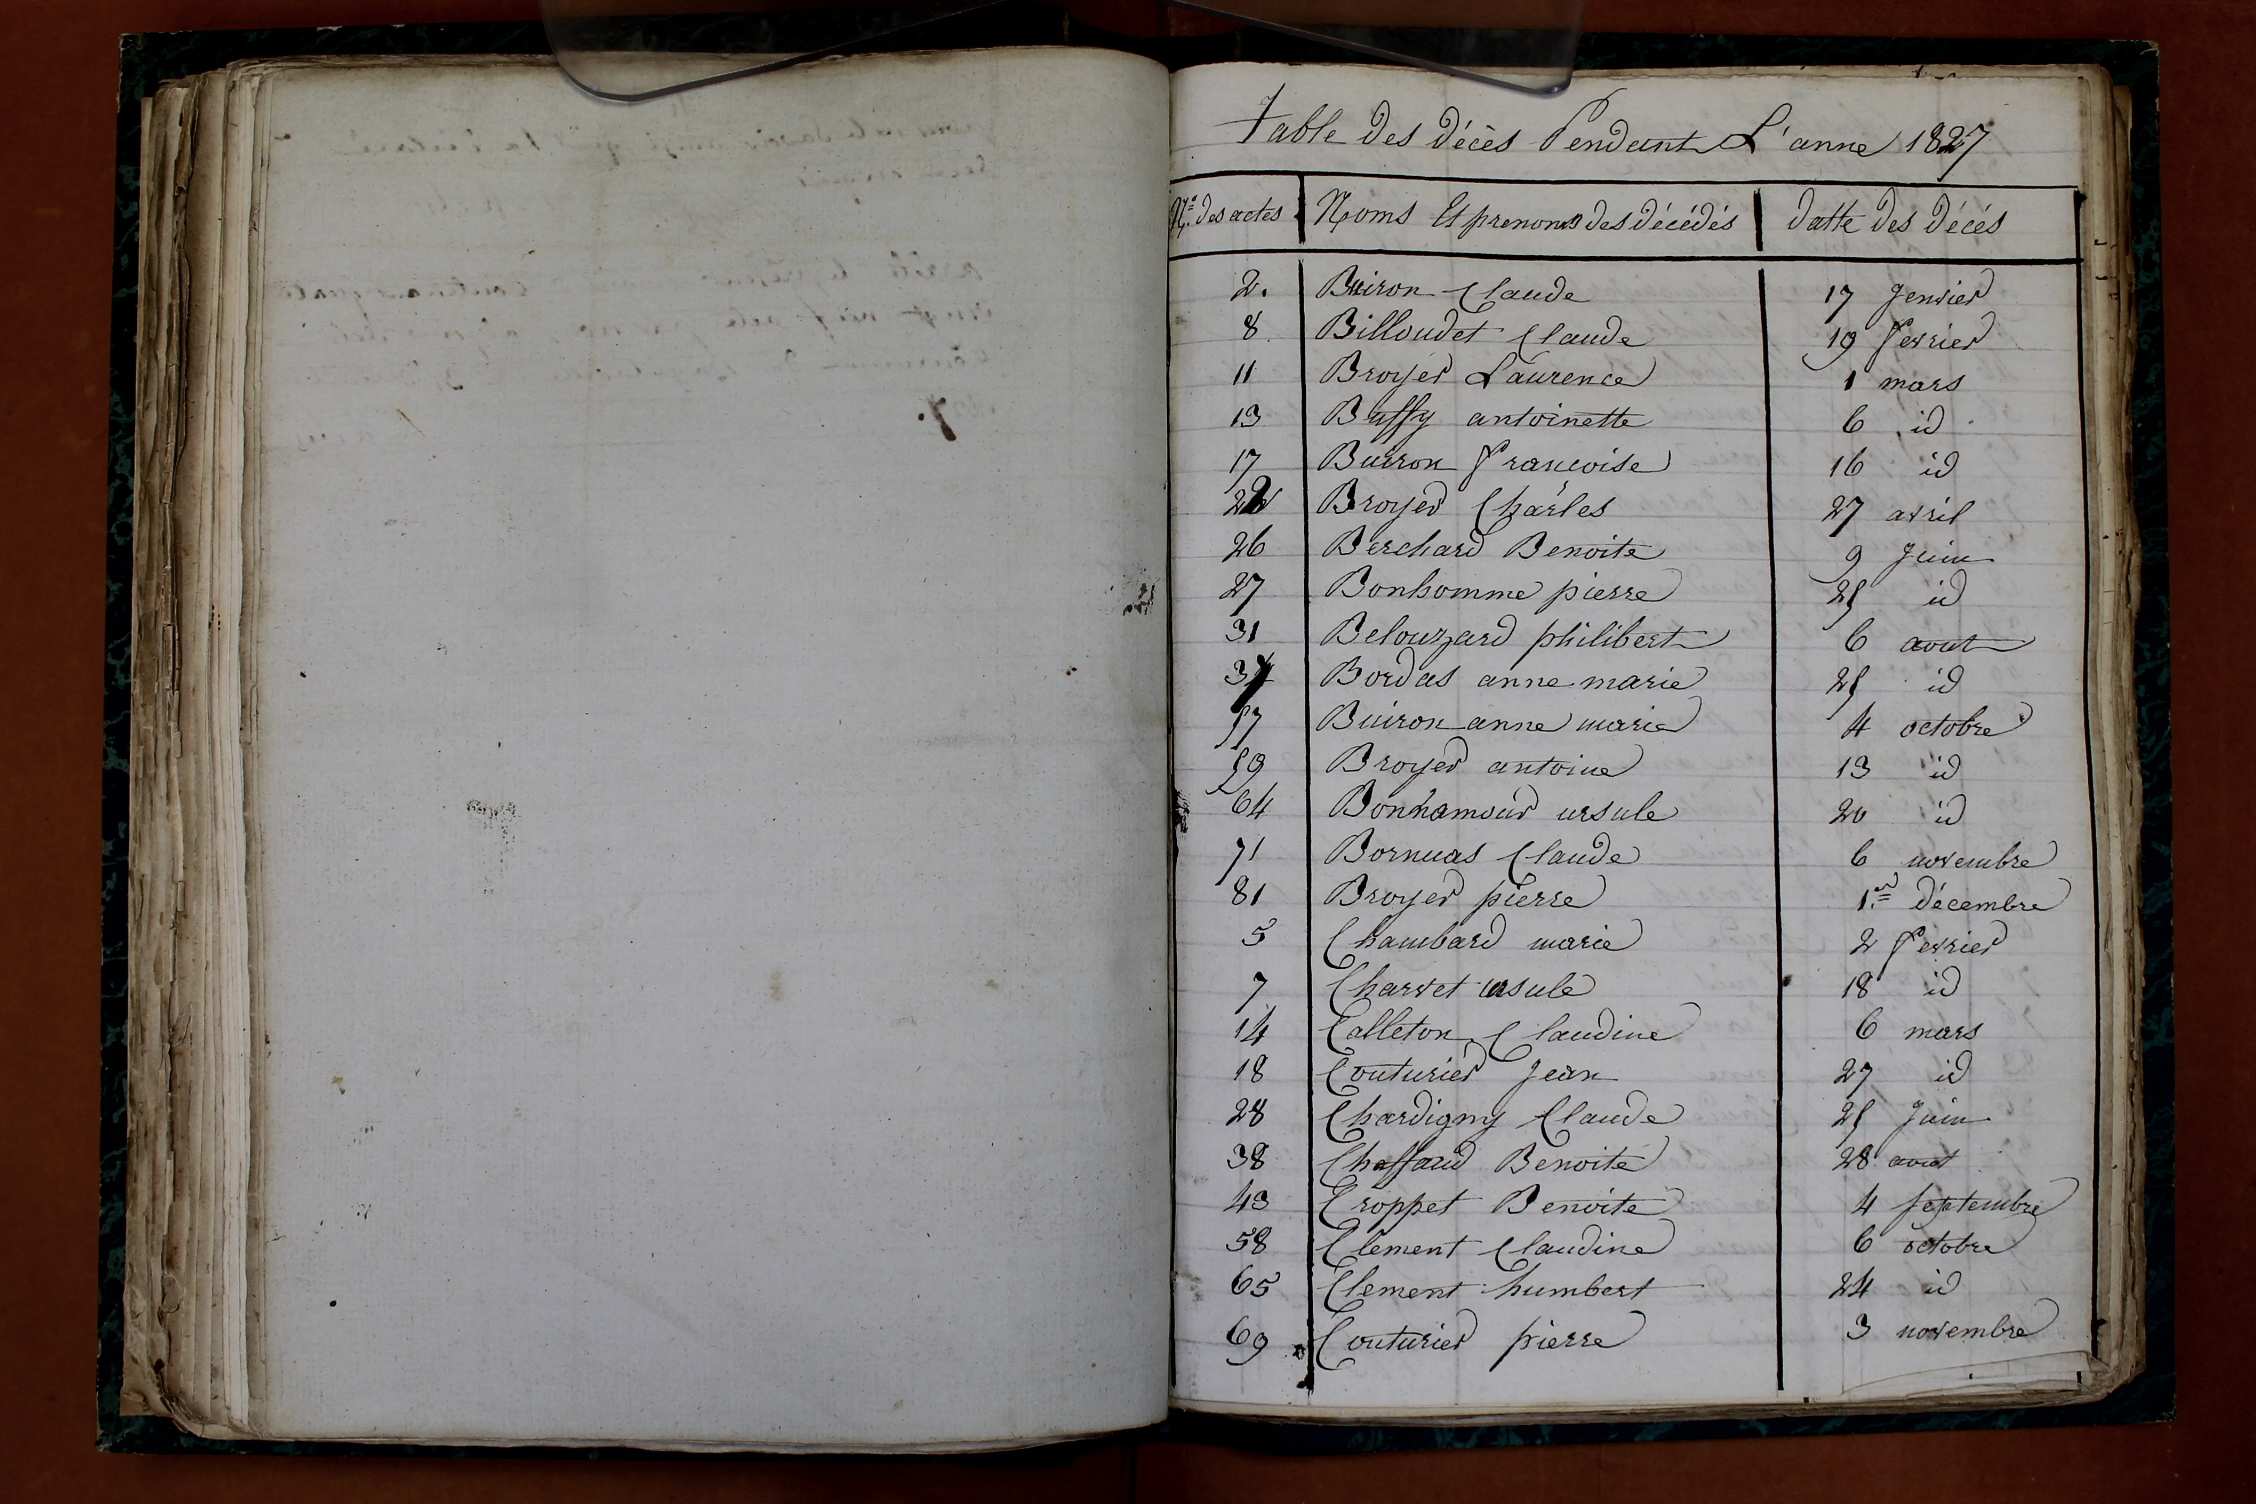 Table des décès Pendant L'anne 1827
Nos des actes Noms Et prenoms des décédés datte des décés
2. Buiron Claude 17 Jenvier
8. Billoudet Claude 19 fevrier
11 Broyer Laurence 1 mars
13 Buffy antoinette 6 id
17 Buiron francoise 16 id
22 Broyer Charles 27 avril
26 Berchard Benoite 9 Juin
27 Bonhomme pierre 25 id
31 Belouzard philibert 6 aout
37 Bordas anne marie 25 id
57 Buiron anne marie 4 octobre
59 Broyer antoine 13 id
64 Bonnamour ursule 20 id
71 Bornuas Claude 6 novembre
81 Broyer pierre 1er décembre
5 Chambard marie 2 fevrier
7 Charvet ursule 18 id
14 Calleton Claudine 6 mars
18 Couturier Jean 27 id
28 Chardigny Claude 25 Juin
38 Chaffaud Benoite 28 aout
43 Croppet Benoite 4 septembre
58 Clement Claudine 6 octobre
65 Clement humbert 24 id
69 Couturier pierre 3 novembre